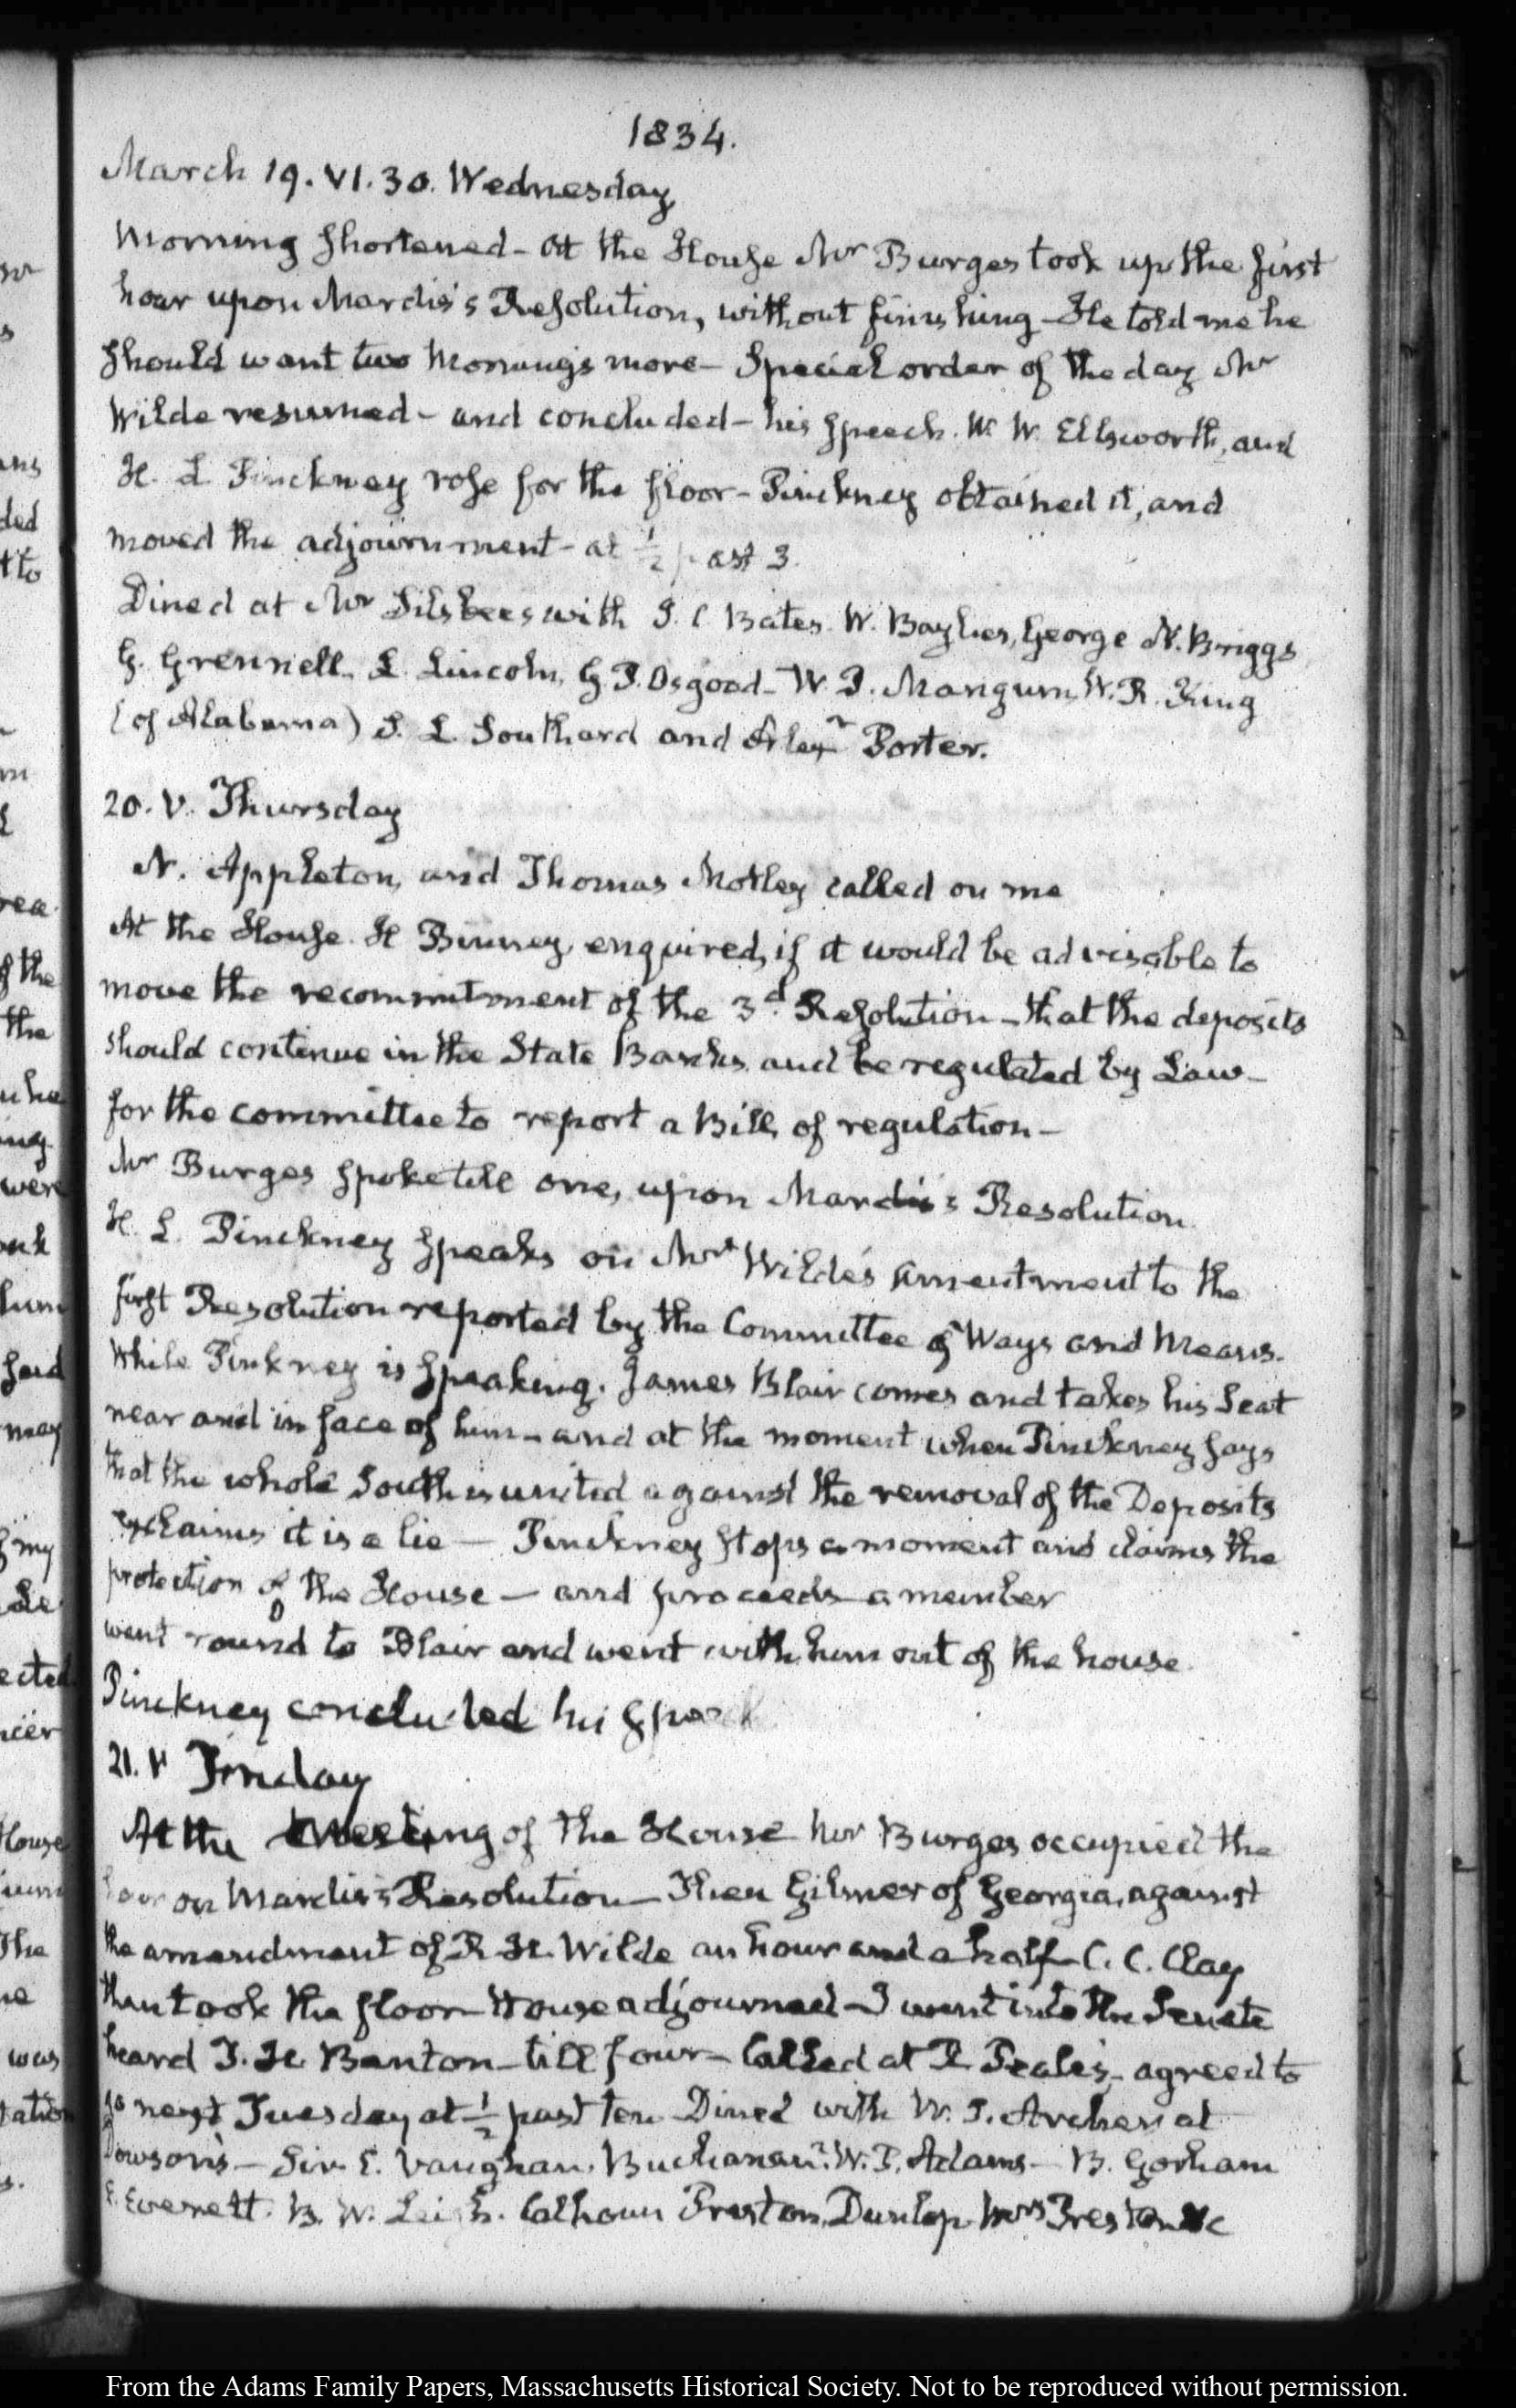 1834.
March 19. VI. 30. Wednesday
Morning shortened - At the House Mr Burges took up the first
hour upon Mardis's Resolution, without finishing - He told me he
should want two Mornings more - Special order of the day Mr
Wilde resumed - and concluded - his speech. W. W. Ellsworth, and
H. L. Pinckney rose for the floor - Pinckney obtained it, and
moved the adjournment - at ½ past 3.
Dined at Mr Silsbee's with I. C. Bates. W. Baylies, George N. Briggs
G. Grennell. L. Lincoln, G. P. Osgood - W. P. Mangum, W. R. King
(of Alabama) S. L. Southard and Alexr Porter.
20. V. Thursday
N. Appleton, and Thomas Motley called on me
At the House. H Binney, enquired, if it would be advisable to
move the recommitment of the 3d. Resolution - that the deposits
should continue in the State Banks and be regulated by Law -
for the committee to report a Bill, of regulation -
Mr Burges spoke till one, upon Mardis's Resolution
H. L. Pinckney speaks on Mr Wilde's amentment to the
first Resolution reported by the Committee of Ways and Means.
While Pinkney is speaking. James Blair comes and takes his Seat
near and in face of him - and at the moment when Pinckney says
that the whole South is united against the removal of the Deposits
exclaims it is a lie - Pinckney stops a moment and claims the
protection of the House - and proceeds - a member
went round to Blair and went with him out of the house.
Pinckney concluded his speech
21. V Friday
At the Meeting of the House Mr Burges occupied the
hour on Mardis's Resolution - Then Gilmer of Georgia, against
the amendment of R H. Wilde an hour and a half - C. C. Clay
then took the floor - House adjourned - I went into the Senate
heard T. H. Benton - till four - Called at R Peale's - agreed to
go next Tuesday at ½ past ten. Dined with W. S. Archer at
Dowson's - Sir C. Vaughan. Buchanan. W. P. Adams - B. Gorham
E. Everett. B. W. Leigh. Calhoun Preston, Dunlop Mrs Preston &c
From the Adams Family Papers, Massachusetts Historical Society. Not to be reproduced without permission.